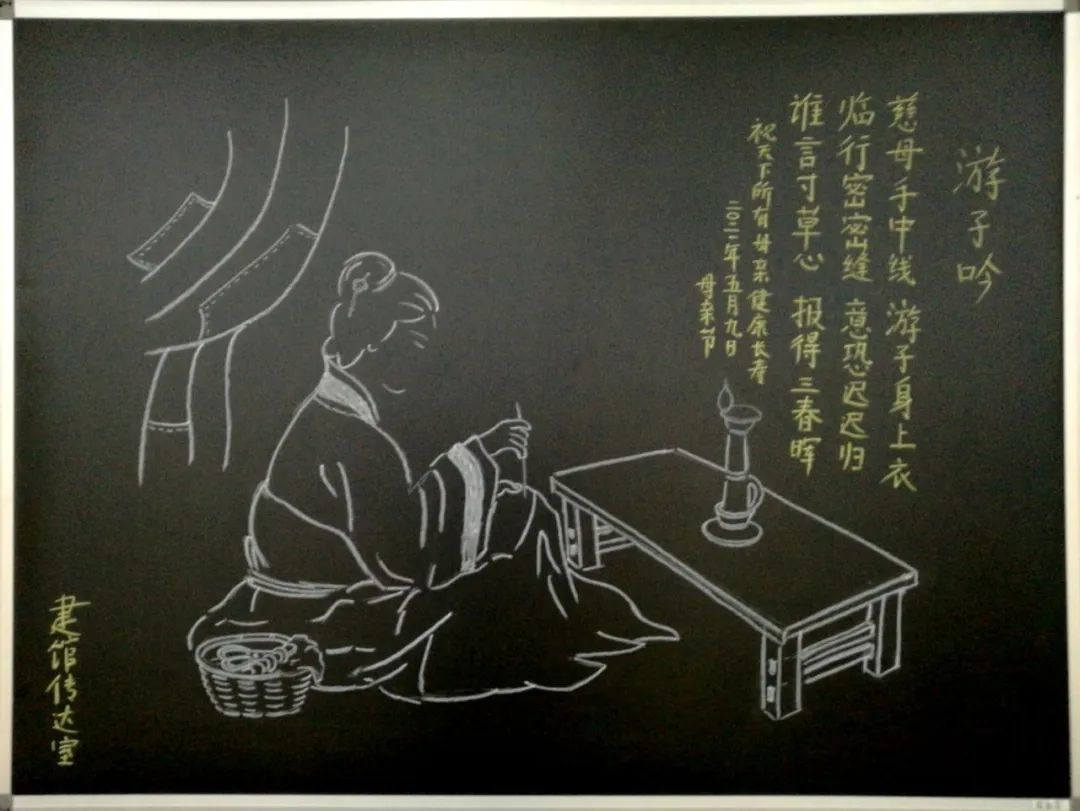 游子吟
慈母手中线 游子身上衣
临行密密缝 意恐迟迟归
谁言寸草心 报得三春晖
祝天下所有母亲健康长寿
二〇二一年五月九日
母亲节
建馆传达室